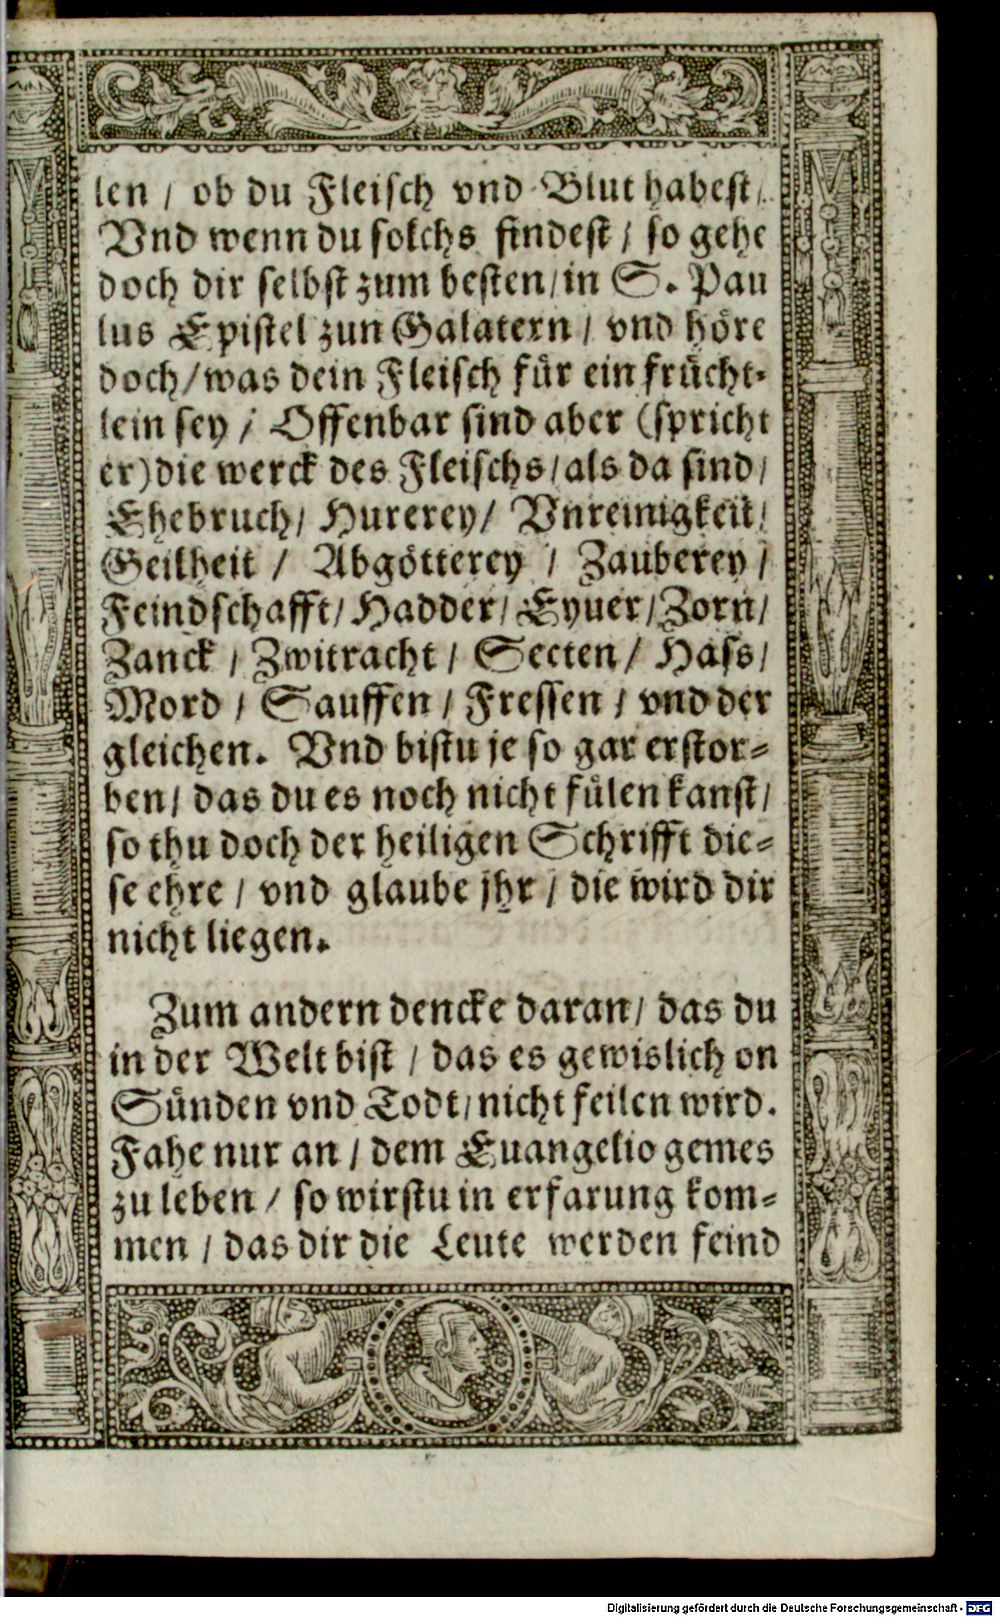 len / ob du Fleisch vnd Blut habest /
Vnd wenn du solchs findest / so gehe
doch dir selbst zum besten / in S. Pau
lus Epistel zun Galatern / vnd höre
doch / was dein Fleisch für ein frücht-
lein sey / Offenbar sind aber (spricht
er) die werck des Fleischs / als da sind /
Ehebruch / Hurerey / Vnreinigkeit /
Geilheit / Abgötterey / Zauberey /
Feindschafft / Hadder / Eyuer / Zorn /
Zanck / Zwitracht / Secten / Hass /
Mord / Sauffen / Fressen / vnd der
gleichen. Vnd bistu je so gar erstor-
ben / das du es noch nicht fülen kanst /
so thu doch der heiligen Schrifft die-
se ehre / vnd glaube jhr / die wird dir
nicht liegen.
Zum andern dencke daran / das du
in der Welt bist / das es gewislich on
Sünden vnd Todt / nicht feilen wird.
Fahe nur an / dem Euangelio gemes
zu leben / so wirstu in erfarung kom-
men / das dir die Leute werden feind
Digitalisierung gefördert durch die Deutsche Forschungsgemeinschaft - DFG